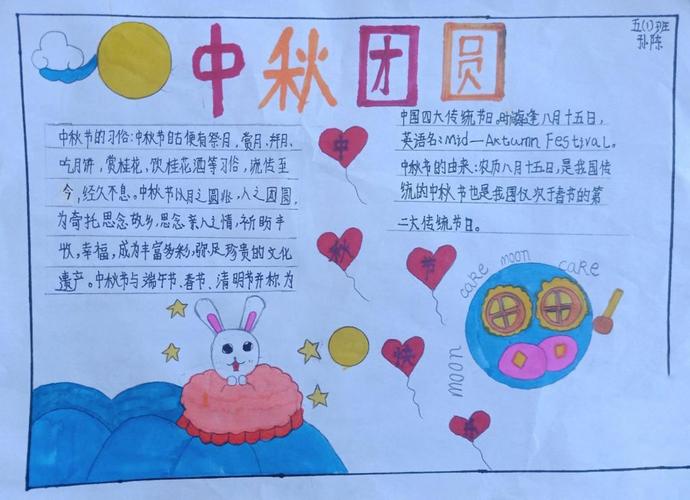 中秋团圆
五(1)班
孙陈
中秋节的习俗:中秋节自古便有祭月,赏月、拜月、
吃月饼,赏桂花,饮桂花酒等习俗,流传至
今,经久不息。中秋节以月之圆兆,人之团圆,
为寄托思念故乡,思念亲人之情,祈盼丰
收,幸福,成为丰富多彩,弥足珍贵的文化
遗产。中秋节与端午节、春节、清明节并称为
中国四大传统节日,时逢八月十五日,
英语名:Mid—Autumn Festival。
中秋节的由来:农历八月十五日,是我国传
统的中秋节也是我国仅次于春节的第
二大传统节日。
中
秋
节
快
乐
cake moon cake
moon